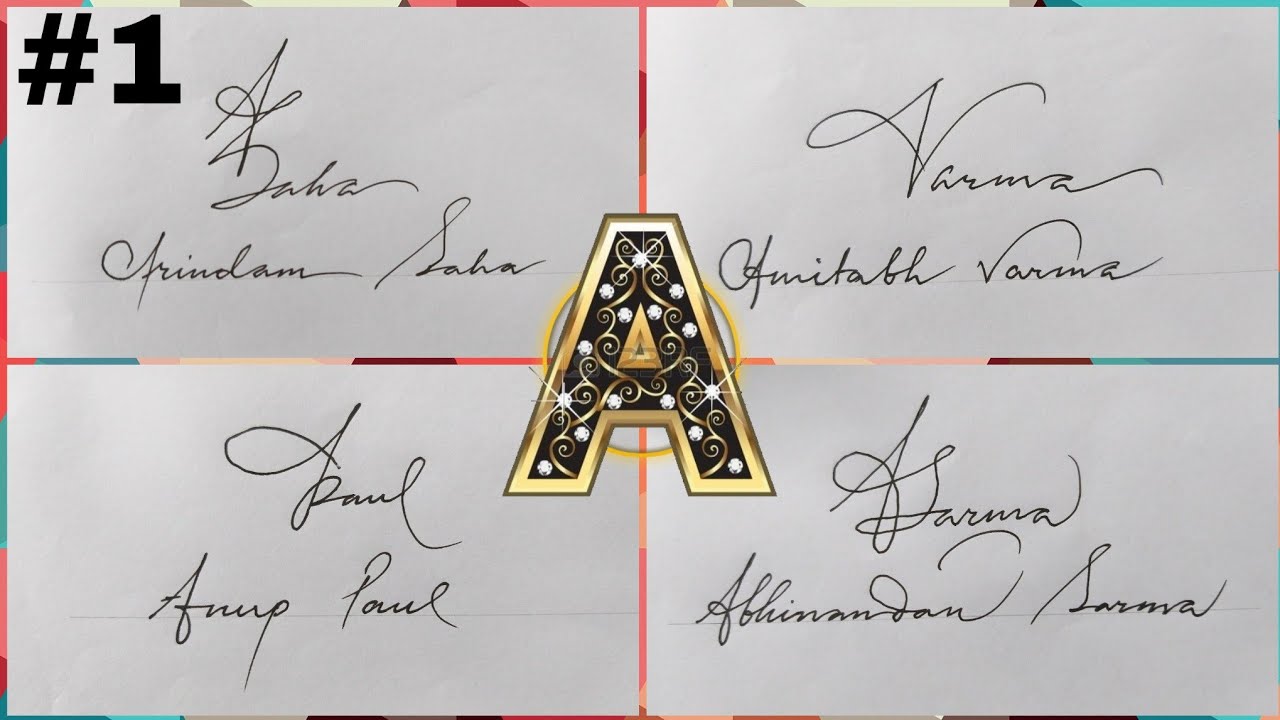 #1
A Saha
Arindam Saha
A Varma
Amitabh Varma
A
A Paul
Anup Paul
A Sarma
Abhinandan Sarma